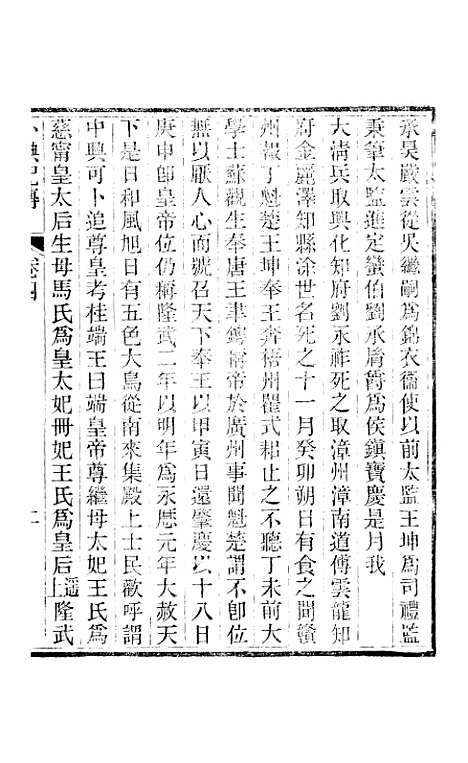 承吳嚴雲從吳繼嗣爲錦衣衞使以前太監王坤爲司禮監
秉筆太監進定蠻伯劉承𦙍爵爲侯鎭寶慶是月我
大淸兵取興化知府劉永祚死之取漳州漳南道傅雲龍知
府金麗澤知縣涂世名死之十一月癸卯朔日有食之聞贛
州報丁魁楚王坤奉王奔梧州瞿式耜止之不聽丁未前大
學士蘇觀生奉唐王聿𨮁稱帝於廣州事聞魁楚謂不卽位
無以厭人心而號召天下奉王以甲寅日還肇慶以十八日
庚申卽皇帝位仍稱隆武二年以明年爲永厯元年大赦天
下是日和風旭日有五色大鳥從南來集殿上士民歡呼謂
中興可卜追尊皇考桂端王曰端皇帝尊繼母太妃王氏爲
慈甯皇太后生母馬氏爲皇太妃冊妃王氏爲皇后遥上隆武
小腆紀傳 卷四 二